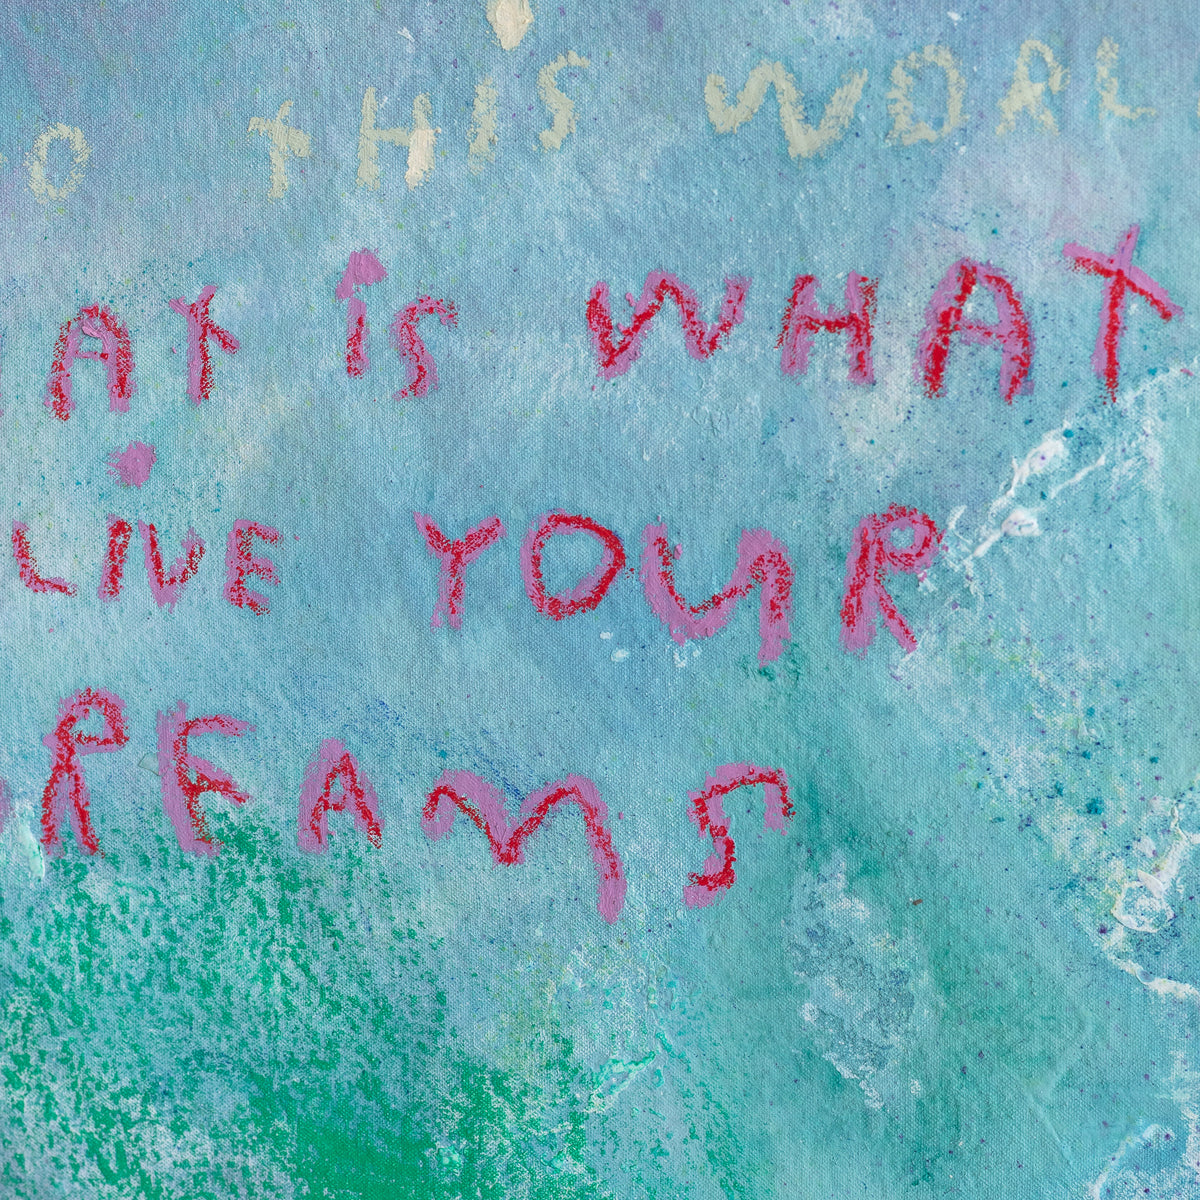 O THIS WORL
AT iS WHAT
LIVE YOUR
REAMS